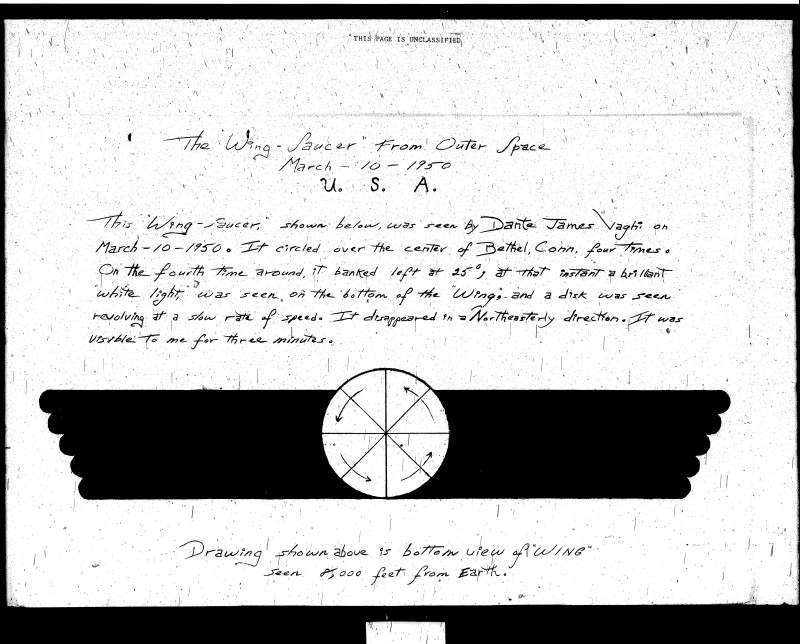 THIS PAGE IS UNCLASSIFIED
The "Wing-Saucer" From Outer Space
March - 10 - 1950
U. S. A.
This "Wing-Saucer," shown below, was seen by Dante James Vaghi on
March-10-1950. It circled over the center of Bethel, Conn. four times.
On the fourth time around, it banked left at 25°, at that instant a brilliant
"white light," was seen, on the bottom of the "Wing", and a disk was seen
revolving at a slow rate of speed. It disappeared in a Northeasterly direction. It was
visible to me for three minutes.
Drawing shown above is bottom view of "WING"
seen 8,000 feet from Earth.